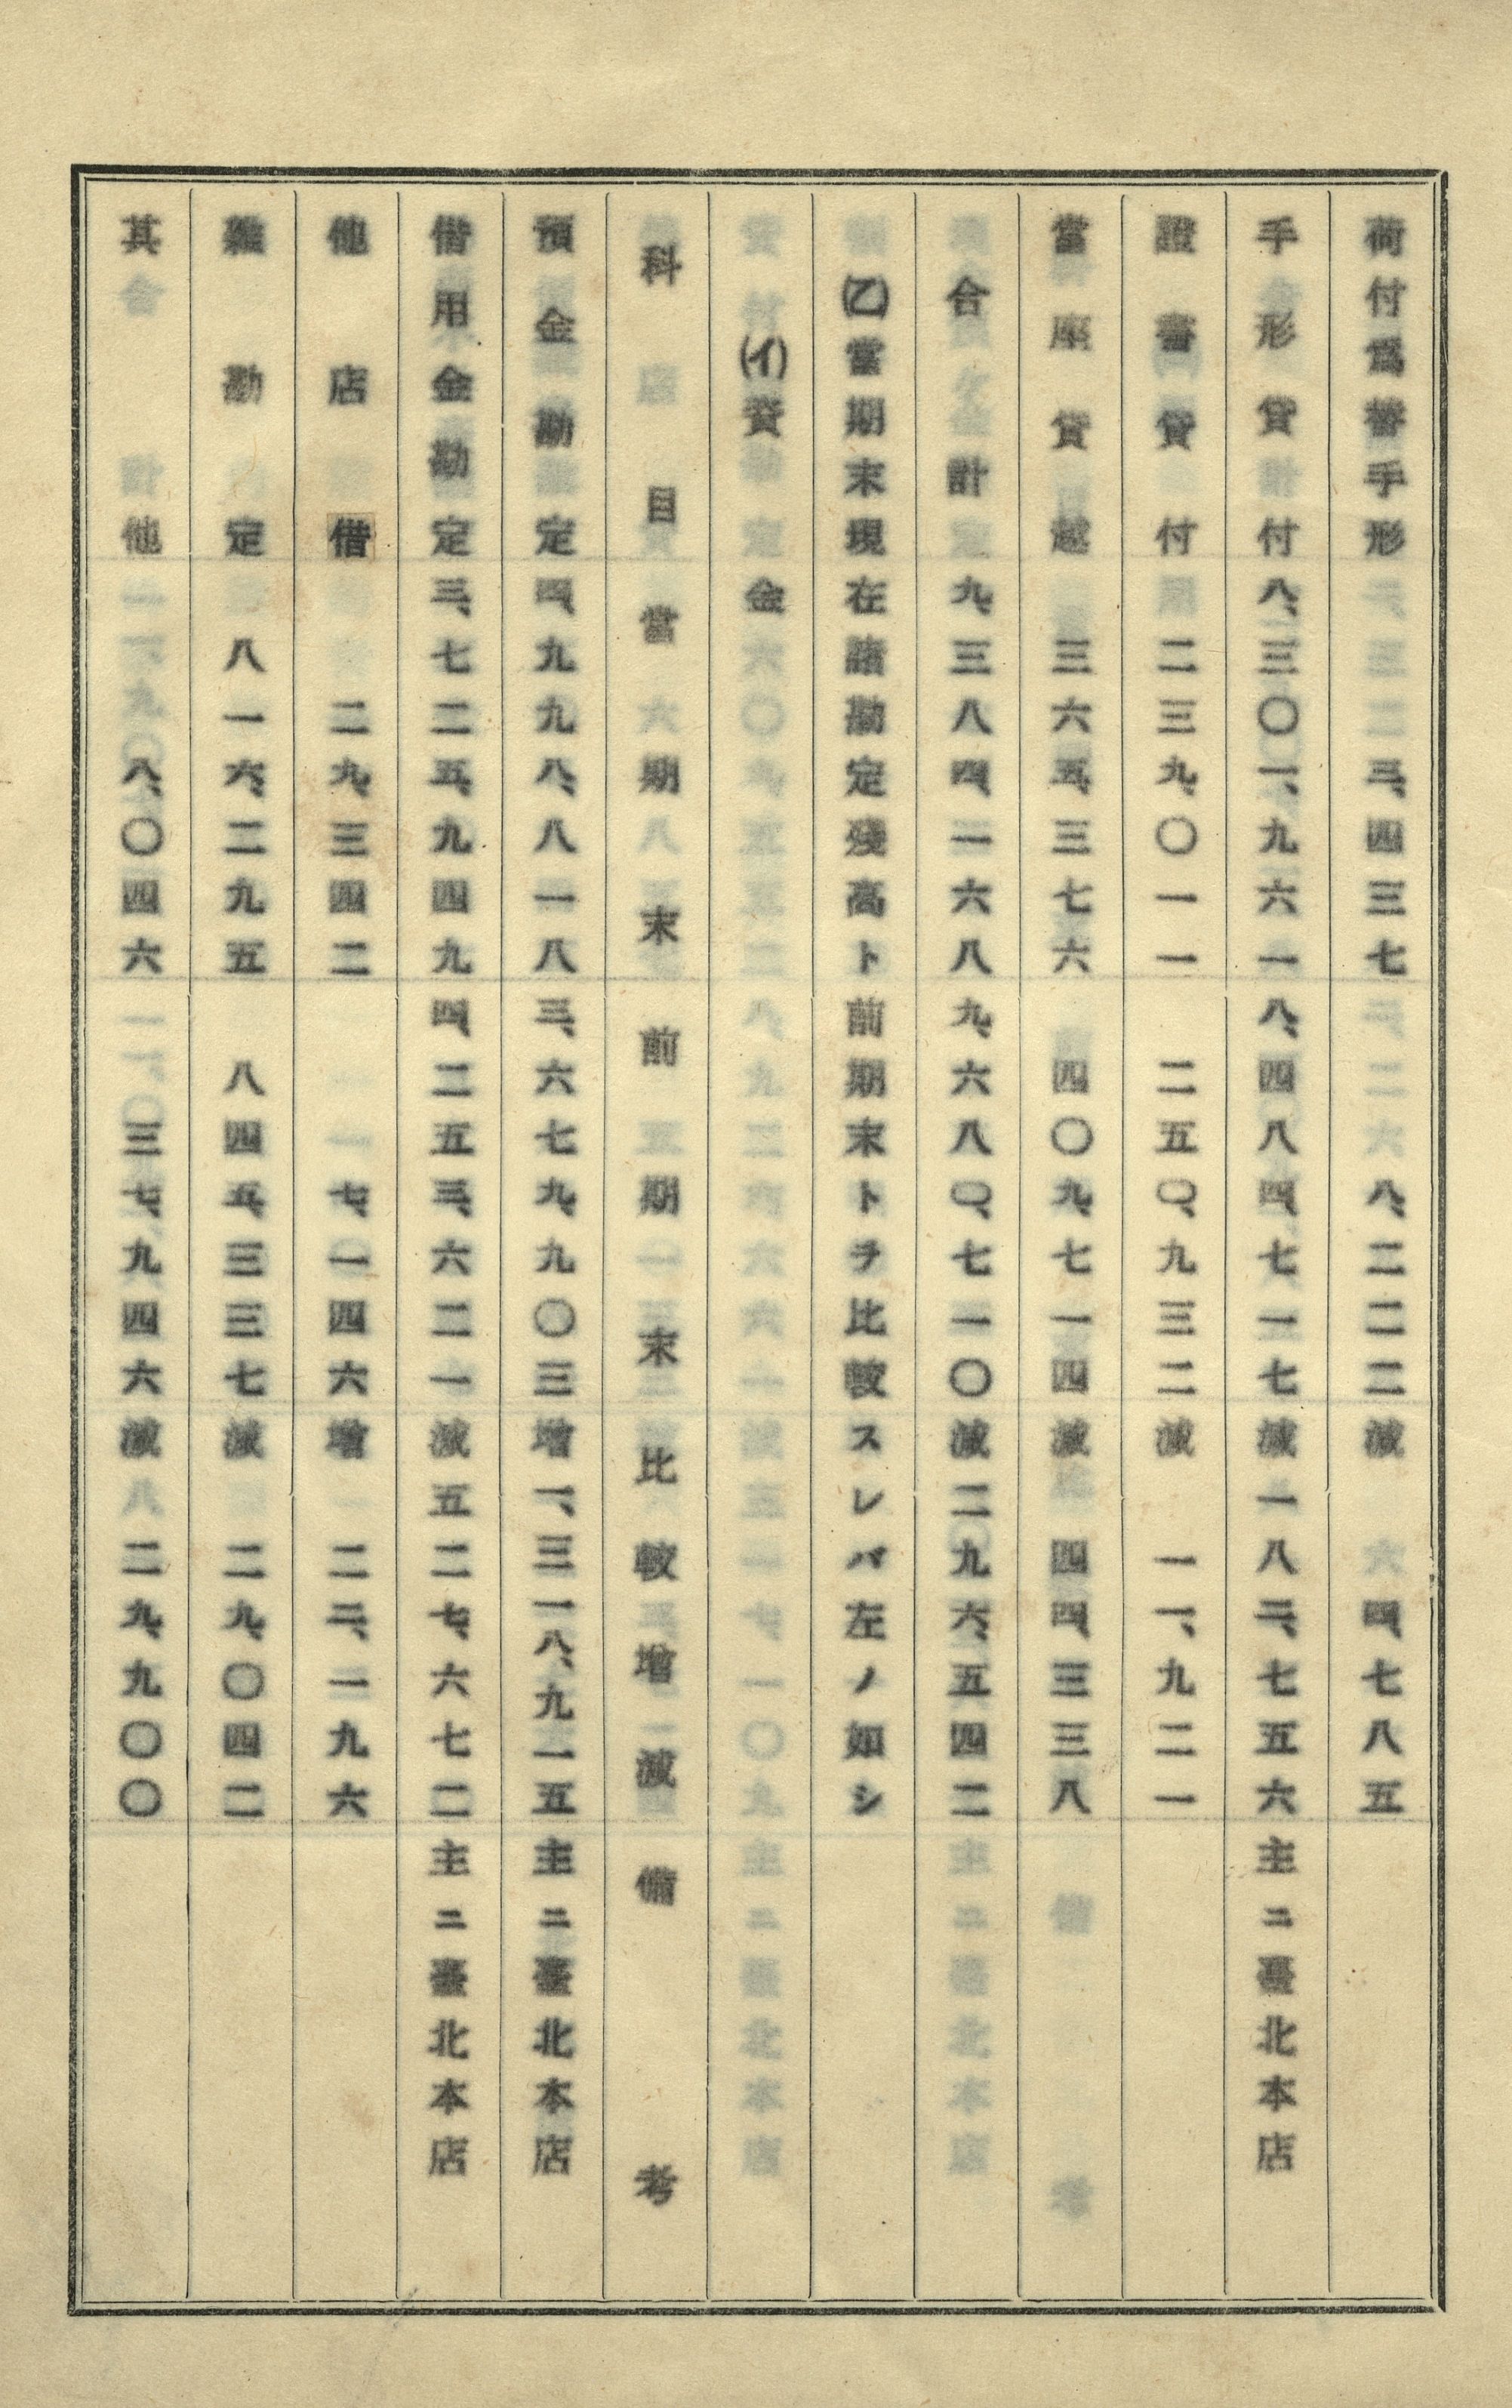 荷付爲替手形 三、四三七 八、二二二 減 四、七八五
手形貸付 八、三〇一、九六一 八、四八四、七一七 減一八二、七五六 主ニ臺北本店
證書貸付 二三九、〇一一 二五〇、九三二 減 一一、九二一
當座貸越 三六五、三七六 四〇九、七一四 減 四四、三三八
合計 九、三八四、一六八 九、六八〇、七一〇 減二九六、五四二
(乙)當期末現在諸勘定殘高ト前期末トヲ比較スレバ左ノ如シ
(イ)資金
科目 當期末 前期末 比較增減 備考
預金勘定 四、九九八、八一八 三、六七九、九〇三 增一、三一八、九一五 主ニ臺北本店
借用金勘定 三、七二五、九四九 四、二五三、六二一 減五二七、六七二 主ニ臺北本店
他店借 二九、三四二 七、一四六 增 二二、一九六
雜勘定 八一六、二九五 八四五、三三七 減 二九、〇四二
其他 八、〇四六 三七、九四六 減 二九、九〇〇